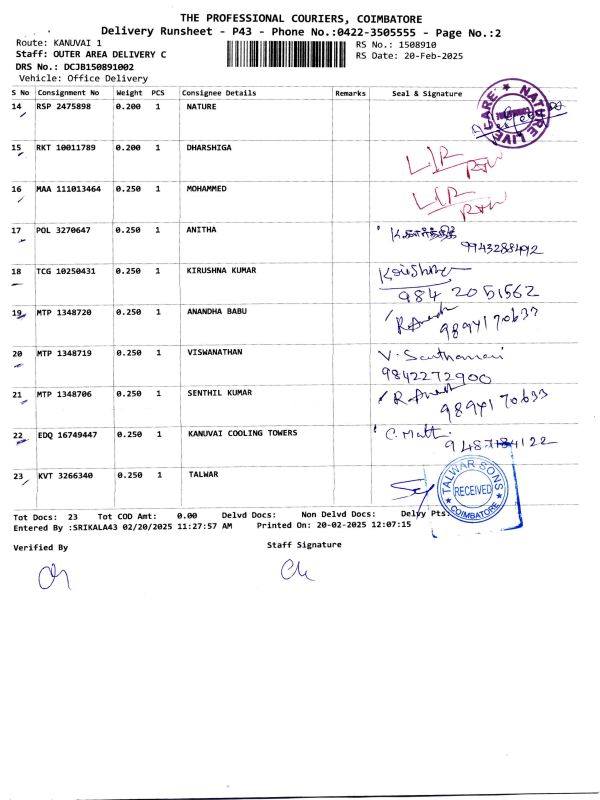 THE PROFESSIONAL COURIERS, COIMBATORE
Delivery Runsheet - P43 - Phone No.:0422-3505555 - Page No.:2
Route: KANUVAI 1
RS No.: 1508910
Staff: OUTER AREA DELIVERY C
RS Date: 20-Feb-2025
DRS No.: DCJB150891002
Vehicle: Office Delivery
S No Consignment No Weight PCS Consignee Details Remarks Seal & Signature
14 RSP 2475898 0.200 1 NATURE
NATURE LIVE CARE
15 RKT 10011789 0.200 1 DHARSHIGA
16 MAA 111013464 0.250 1 MOHAMMED
17 POL 3270647 0.250 1 ANITHA
9943288492
18 TCG 10250431 0.250 1 KIRUSHNA KUMAR
984 2051562
19 MTP 1348720 0.250 1 ANANDHA BABU
9894170633
20 MTP 1348719 0.250 1 VISWANATHAN
9842272900
21 MTP 1348706 0.250 1 SENTHIL KUMAR
9894170633
22 EDQ 16749447 0.250 1 KANUVAI COOLING TOWERS
23 KVT 3266340 0.250 1 TALWAR
TALWAR SONS
RECEIVED
COIMBATORE
Tot Docs: 23 Tot COD Amt: 0.00 Delvd Docs: Non Delvd Docs: Delvy Pts:
Entered By :SRIKALA43 02/20/2025 11:27:57 AM Printed On: 20-02-2025 12:07:15
Verified By
Staff Signature